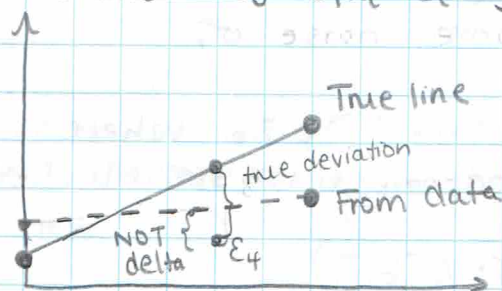 True line
true deviation
From data
NOT
delta
ε4